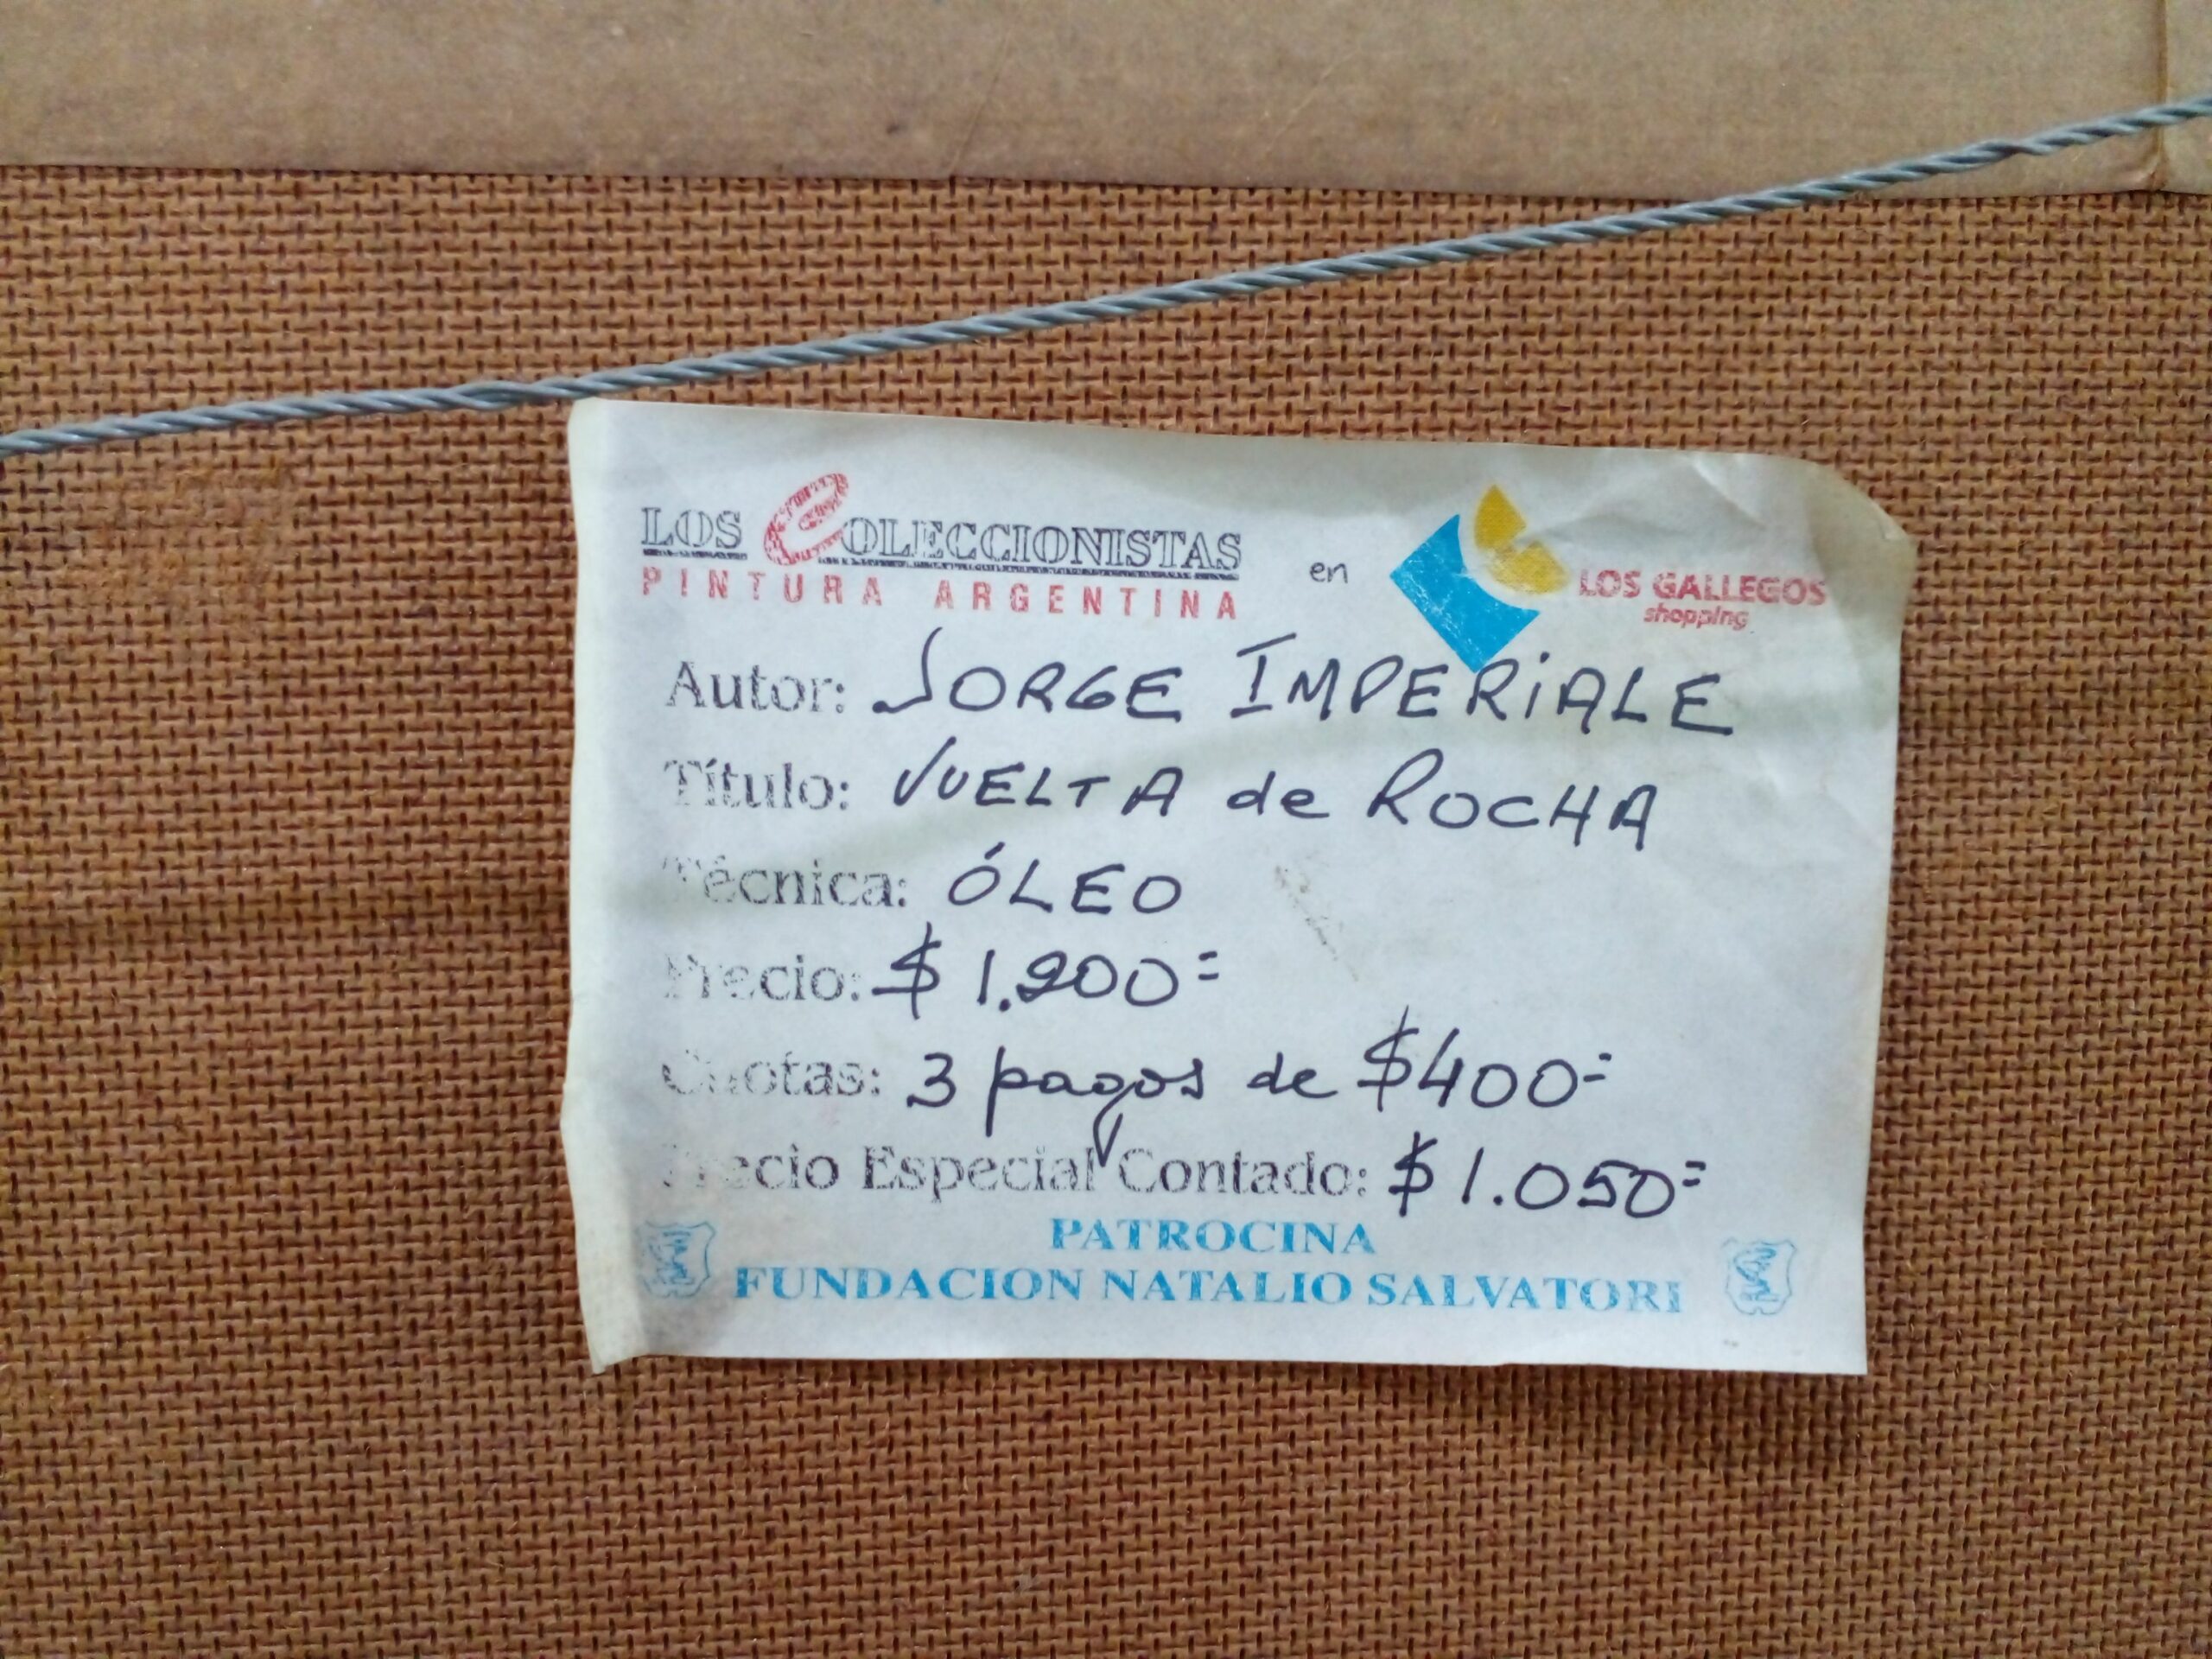 LOS COLECCIONISTAS
PINTURA ARGENTINA
en
LOS GALLEGOS
shopping
Autor: JORGE IMPERiALE
Título: VUELTA de ROCHA
Técnica: ÓLEO
Precio: $ 1.200=
Cuotas: 3 pagos de $400=
Precio Especial Contado: $ 1.050=
PATROCINA
FUNDACION NATALIO SALVATORI